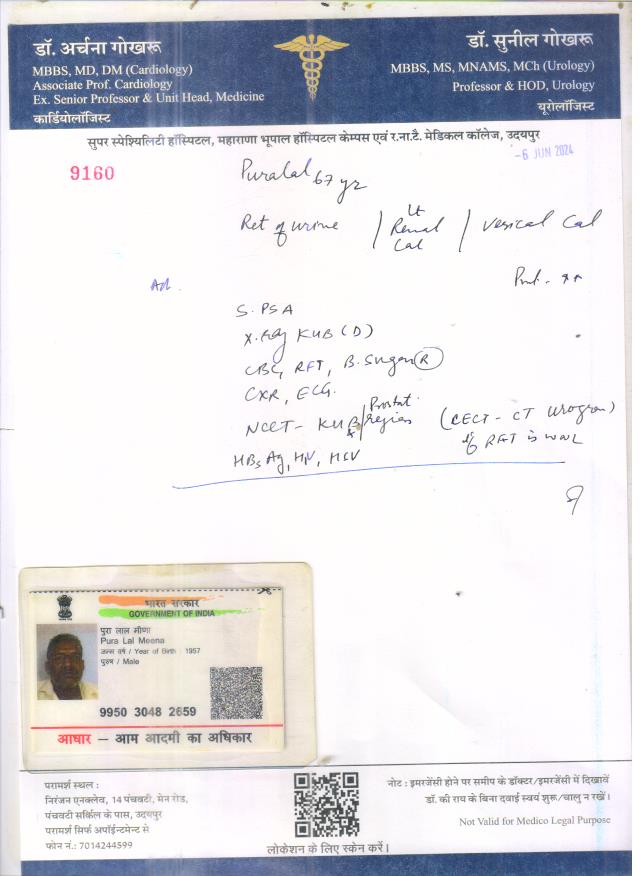 डॉ. अर्चना गोखरू
MBBS, MD, DM (Cardiology)
Associate Prof. Cardiology
Ex. Senior Professor & Unit Head, Medicine
कार्डियोलॉजिस्ट
डॉ. सुनील गोखरू
MBBS, MS, MNAMS, MCh (Urology)
Professor & HOD, Urology
यूरोलॉजिस्ट
सुपर स्पेश्यिलिटी हॉस्पिटल, महाराणा भूपाल हॉस्पिटल केम्पस एवं र.ना.टै. मेडिकल कॉलेज, उदयपुर
-6 JUN 2024
9160
Puralal 67 yr
Ret of urine / Lt Renal Cal / Vesical Cal
Prst. ++
Ad.
S. PSA
X-Ray KUB (D)
CBC, RFT, B. Sugar (R)
CXR, ECG.
NCCT - KUB & / Prostat regions (CECT - CT Urogram) if RFT is WNL
HBsAg, HIV, HCV
भारत सरकार
GOVERNMENT OF INDIA
पुरा लाल मीणा
Pura Lal Meena
जन्म वर्ष / Year of Birth : 1957
पुरुष / Male
9950 3048 2659
आधार — आम आदमी का अधिकार
परामर्श स्थल :
निरंजन एनक्लेव, 14 पंचवटी, मेन रोड,
पंचवटी सर्किल के पास, उदयपुर
परामर्श सिर्फ अपॉईन्टमेन्ट से
फोन नं.: 7014244599
लोकेशन के लिए स्केन करें।
नोट : इमरजेंसी होने पर समीप के डॉक्टर/इमरजेंसी में दिखावें
डॉ. की राय के बिना दवाई स्वयं शुरू/चालु न रखें।
Not Valid for Medico Legal Purpose